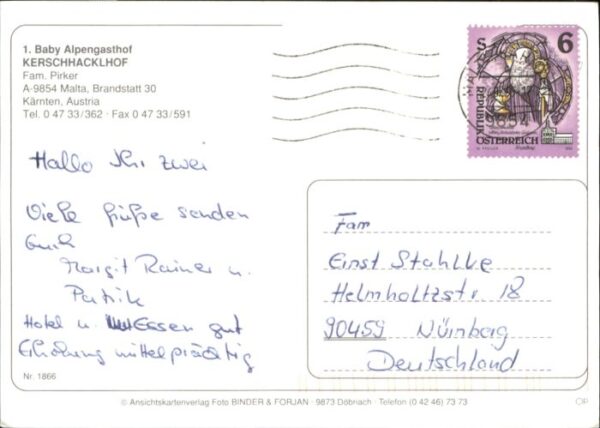 1. Baby Alpengasthof
KERSCHHACKLHOF
Fam. Pirker
A-9854 Malta, Brandstatt 30
Kärnten, Austria
Tel. 0 47 33/362 · Fax 0 47 33/591
6
9854
REPUBLIK
ÖSTERREICH
Hallo Ihr zwei
Viele Grüße senden
Euch
Margit Rainer u.
Patrik
Hotel u. Essen gut
Erholung mittelprächtig
Fam
Ernst Stahlke
Helmholtzstr. 18
90459 Nürnberg
Deutschland
Nr. 1866
© Ansichtskartenverlag Foto BINDER & FORJAN · 9873 Döbriach · Telefon (0 42 46) 73 73